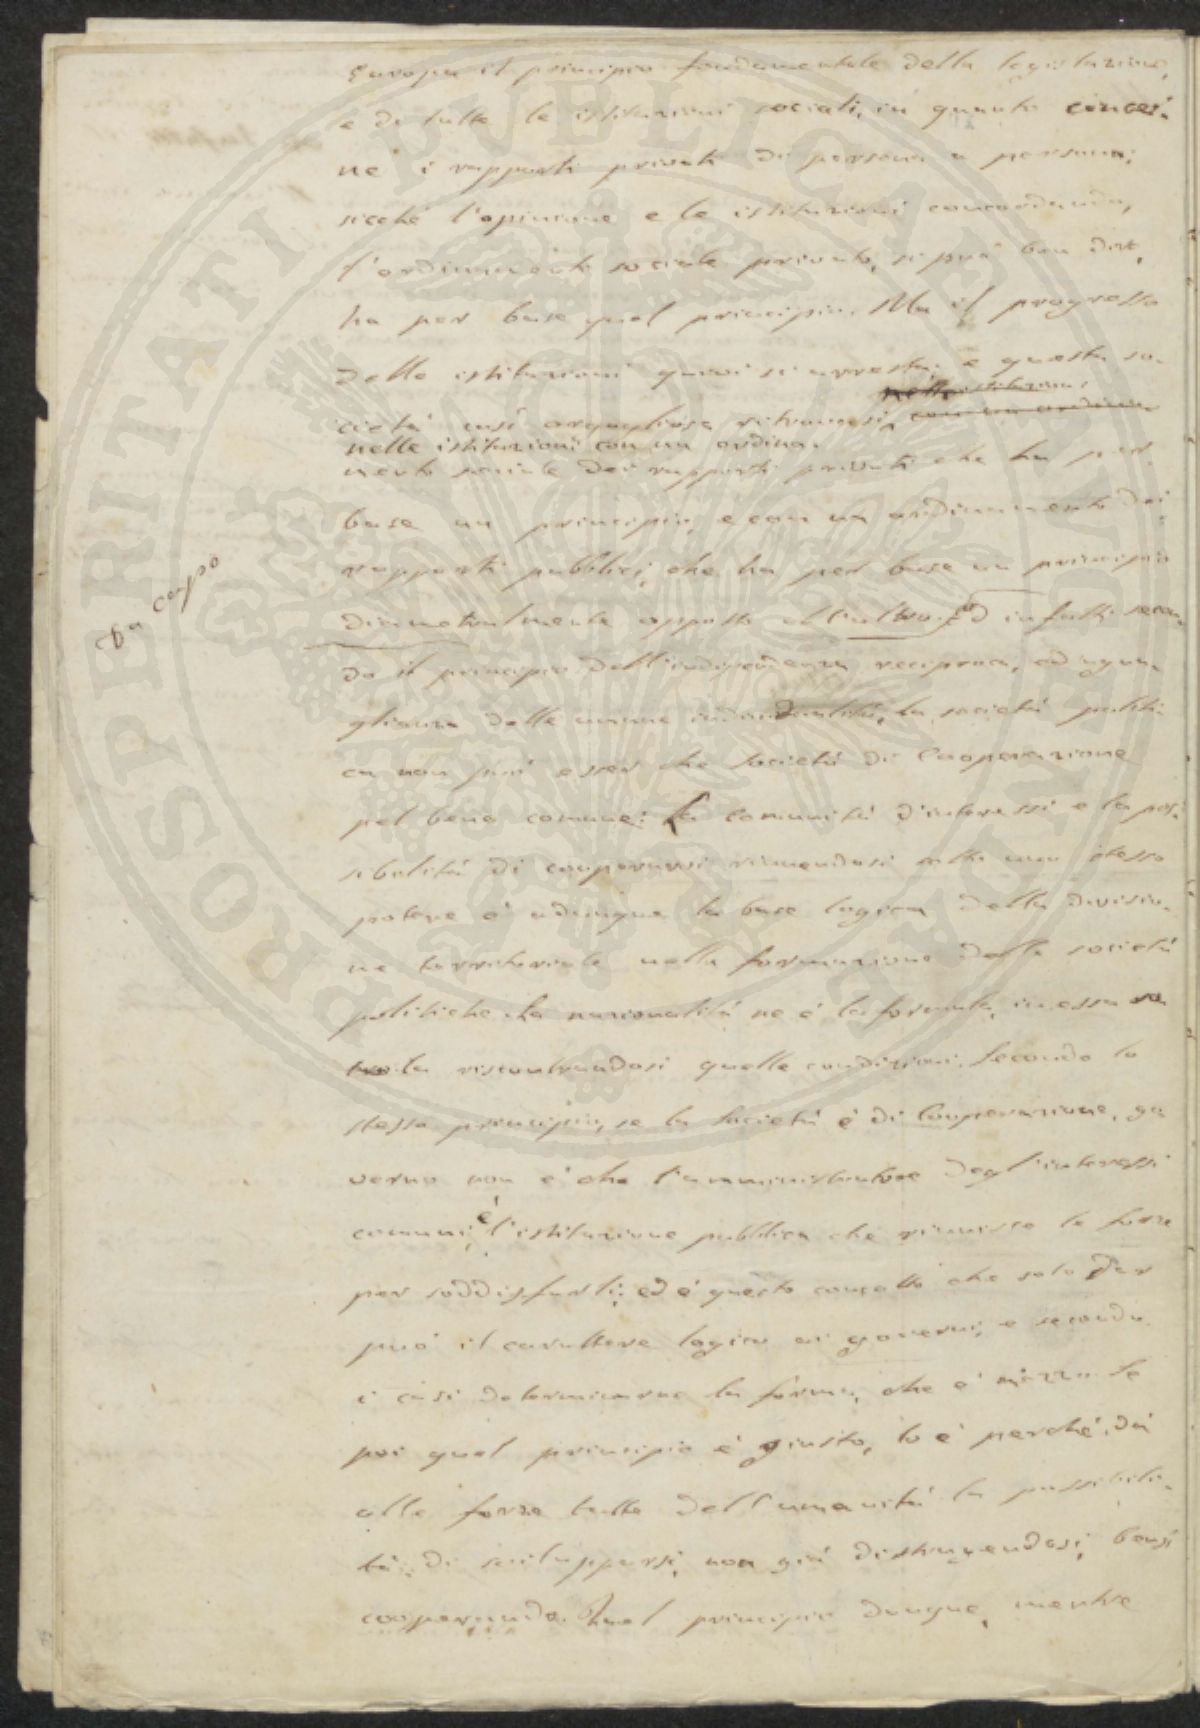 Europa il principio fondamentale della legislazione,
e di tutte le istituzioni sociali, in quanto concer-
ne i rapporti privati di persona a persona;
sicché l'opinione e le istituzioni concordando,
l'ordinamento sociale privato, si può ben dire,
ha per base quel principio. Ma il progresso
delle istituzioni quivi si arresta; e questa so-
nelle istituzioni
cietà così orgogliosa ritrovasi, con un ordina-
nelle istituzioni con un ordina-
mento sociale dei rapporti privati che ha per
base un principio, e con un ordinamento dei
rapporti pubblici, che ha per base un principio
Da capo
diametralmente opposto all'altro. Ed infatti secon-
do il principio dell'indipendenza reciproca, ed uguaglianza delle umane individualità, la società politi-
ca non può esser che società di Cooperazione
pel bene comune: la comunità d'interessi e la pos-
sibilità di cooperarvi riunendosi sotto uno stesso
potere è adunque la base logica della divisio-
ne territoriale nella formazione delle società
politiche. La nazionalità ne è la formula, in essa
riscontrandosi quelle condizioni. Secondo lo
stesso principio, se la società è di Cooperazione, go-
verno non è che l'amministratore degl'interessi
comuni; è l'istituzione pubblica che riunisce le forze
per soddisfarli; ed è questo concetto che solo dar
può il carattere logico ai governi, e secondo
i casi determinarne la forma, che è mezzo. Se
poi quel principio è giusto, lo è perché dà
alle forze tutte dell'umanità la possibili-
tà di svilupparsi, non già distruggendosi, bensì
cooperando. Quel principio dunque, mentre